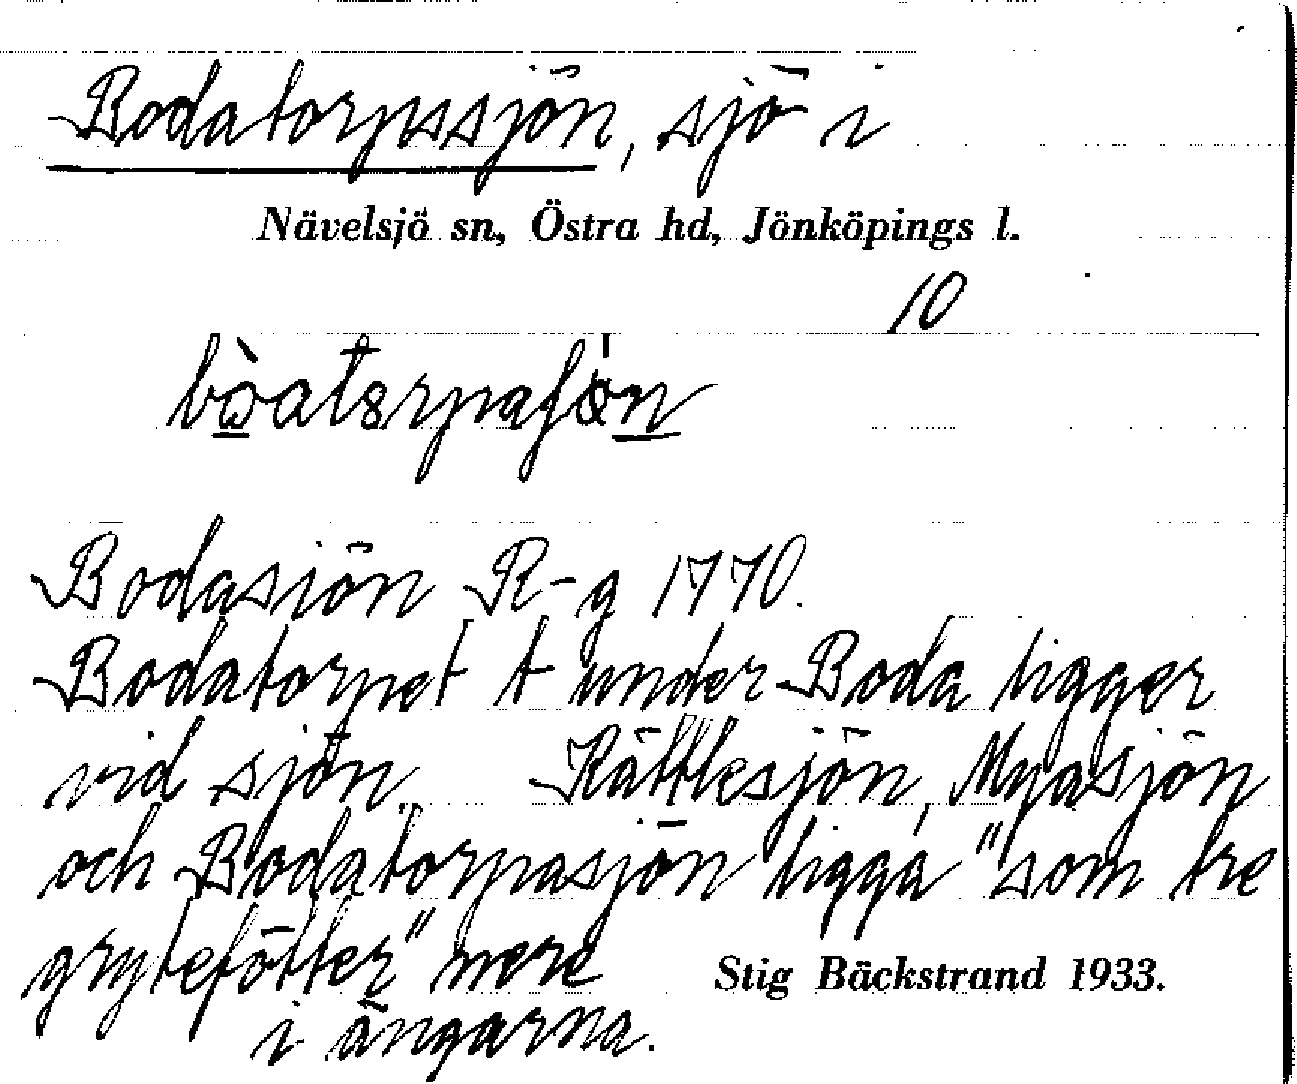 Bodatorpssjön, sjö i
Nävelsjö sn, Östra hd, Jönköpings l.
10
Bodasiön R-g 1770.
Bodatorpet t under Boda ligger
vid sjön. Kättlesjön, Myasjön
och Bodatorpasjön ligga "som tre
grytefötter" nere
Stig Bäckstrand 1933.
i ängarna.